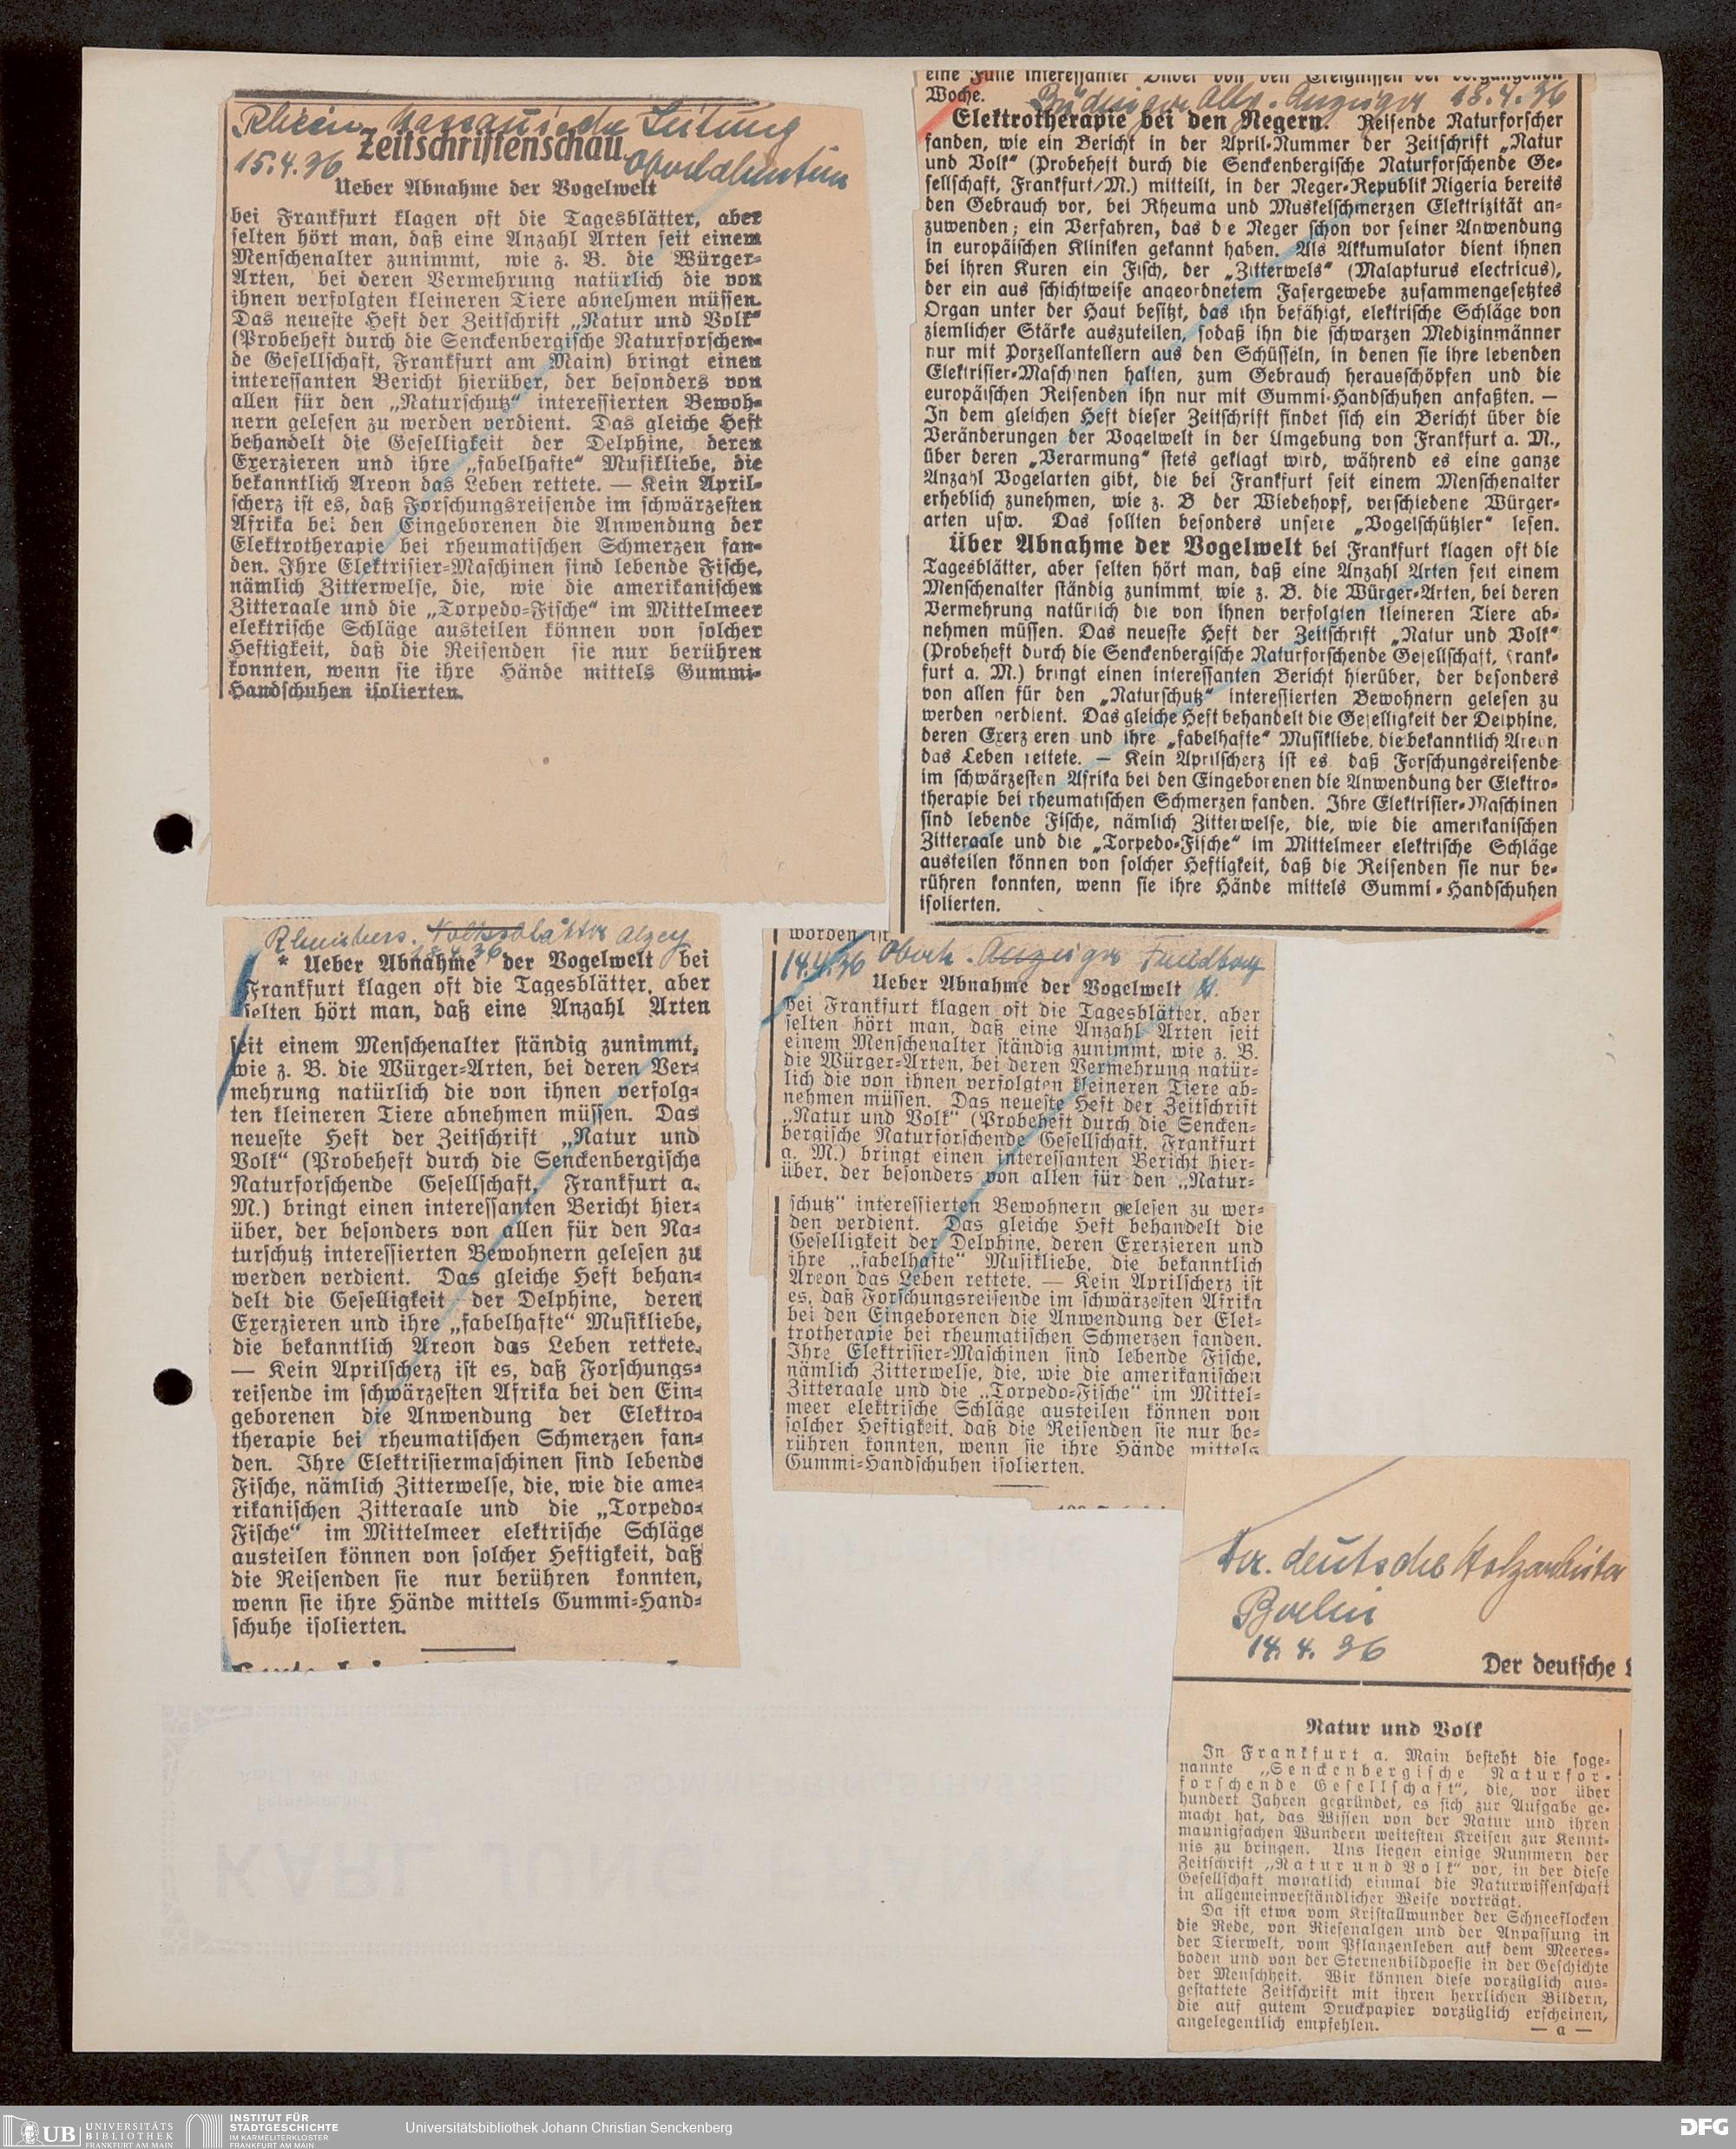 Rhein Nassauische Zeitung
15.4.36 Oberlahnstein
Zeitschriftenschau
Ueber Abnahme der Vogelwelt
bei Frankfurt klagen oft die Tagesblätter, aber
selten hört man, daß eine Anzahl Arten seit einem
Menschenalter zunimmt, wie z. B. die Würger-
Arten, bei deren Vermehrung natürlich die von
ihnen verfolgten kleineren Tiere abnehmen müssen.
Das neueste Heft der Zeitschrift „Natur und Volk“
(Probeheft durch die Senckenbergische Naturforschen-
de Gesellschaft, Frankfurt am Main) bringt einen
interessanten Bericht hierüber, der besonders von
allen für den „Naturschutz“ interessierten Bewoh-
nern gelesen zu werden verdient. Das gleiche Heft
behandelt die Geselligkeit der Delphine, deren
Exerzieren und ihre „fabelhafte“ Musikliebe, die
bekanntlich Areon das Leben rettete. — Kein April-
scherz ist es, daß Forschungsreisende im schwärzesten
Afrika bei den Eingeborenen die Anwendung der
Elektrotherapie bei rheumatischen Schmerzen fan-
den. Ihre Elektrisier-Maschinen sind lebende Fische,
nämlich Zitterwelse, die, wie die amerikanischen
Zitteraale und die „Torpedo-Fische“ im Mittelmeer
elektrische Schläge austeilen können von solcher
Heftigkeit, daß die Reisenden sie nur berühren
konnten, wenn sie ihre Hände mittels Gummi-
Handschuhen isolierten.
eine Fülle interessanter Bilder von den Ereignissen der vergangenen
Woche.
Büdinger Allg. Anzeiger 18.4.36
Elektrotherapie bei den Negern. Reisende Naturforscher
fanden, wie ein Bericht in der April-Nummer der Zeitschrift „Natur
und Volk“ (Probeheft durch die Senckenbergische Naturforschende Ge-
sellschaft, Frankfurt/M.) mitteilt, in der Neger-Republik Nigeria bereits
den Gebrauch vor, bei Rheuma und Muskelschmerzen Elektrizität an-
zuwenden; ein Verfahren, das d e Neger schon vor seiner Anwendung
in europäischen Kliniken gekannt haben. Als Akkumulator dient ihnen
bei ihren Kuren ein Fisch, der „Zitterwels“ (Malapturus electricus),
der ein aus schichtweise angeordnetem Fasergewebe zusammengesetztes
Organ unter der Haut besitzt, das ihn befähigt, elektrische Schläge von
ziemlicher Stärke auszuteilen, sodaß ihn die schwarzen Medizinmänner
nur mit Porzellantellern aus den Schüsseln, in denen sie ihre lebenden
Elektrisier-Maschinen halten, zum Gebrauch herausschöpfen und die
europäischen Reisenden ihn nur mit Gummi-Handschuhen anfaßten. —
In dem gleichen Heft dieser Zeitschrift findet sich ein Bericht über die
Veränderungen der Vogelwelt in der Umgebung von Frankfurt a. M.,
über deren „Verarmung“ stets geklagt wird, während es eine ganze
Anzahl Vogelarten gibt, die bei Frankfurt seit einem Menschenalter
erheblich zunehmen, wie z. B der Wiedehopf, verschiedene Würger-
arten usw. Das sollten besonders unsere „Vogelschützler“ lesen.
Über Abnahme der Vogelwelt bei Frankfurt klagen oft die
Tagesblätter, aber selten hört man, daß eine Anzahl Arten seit einem
Menschenalter ständig zunimmt, wie z. B. die Würger-Arten, bei deren
Vermehrung natürlich die von ihnen verfolgten kleineren Tiere ab-
nehmen müssen. Das neueste Heft der Zeitschrift „Natur und Volk“
(Probeheft durch die Senckenbergische Naturforschende Gesellschaft, Frank-
furt a. M.) bringt einen interessanten Bericht hierüber, der besonders
von allen für den „Naturschutz“ interessierten Bewohnern gelesen zu
werden verdient. Das gleiche Heft behandelt die Geselligkeit der Delphine,
deren Exerz eren und ihre „fabelhafte“ Musikliebe, die bekanntlich Areon
das Leben rettete. — Kein Aprilscherz ist es daß Forschungsreisende
im schwärzesten Afrika bei den Eingeborenen die Anwendung der Elektro-
therapie bei rheumatischen Schmerzen fanden. Ihre Elektrisier-Maschinen
sind lebende Fische, nämlich Zitterwelse, die, wie die amerikanischen
Zitteraale und die „Torpedo-Fische“ im Mittelmeer elektrische Schläge
austeilen können von solcher Heftigkeit, daß die Reisenden sie nur be-
rühren konnten, wenn sie ihre Hände mittels Gummi-Handschuhen
isolierten.
Rheinhess. Volksblätter Alzey
18.4.36
* Ueber Abnahme der Vogelwelt bei
Frankfurt klagen oft die Tagesblätter, aber
selten hört man, daß eine Anzahl Arten
seit einem Menschenalter ständig zunimmt,
wie z. B. die Würger-Arten, bei deren Ver-
mehrung natürlich die von ihnen verfolg-
ten kleineren Tiere abnehmen müssen. Das
neueste Heft der Zeitschrift „Natur und
Volk“ (Probeheft durch die Senckenbergische
Naturforschende Gesellschaft, Frankfurt a.
M.) bringt einen interessanten Bericht hier-
über, der besonders von allen für den Na-
turschutz interessierten Bewohnern gelesen zu
werden verdient. Das gleiche Heft behan-
delt die Geselligkeit der Delphine, deren
Exerzieren und ihre „fabelhafte“ Musikliebe,
die bekanntlich Areon das Leben rettete.
— Kein Aprilscherz ist es, daß Forschungs-
reisende im schwärzesten Afrika bei den Ein-
geborenen die Anwendung der Elektro-
therapie bei rheumatischen Schmerzen fan-
den. Ihre Elektrisiermaschinen sind lebende
Fische, nämlich Zitterwelse, die, wie die ame-
rikanischen Zitteraale und die „Torpedo-
Fische“ im Mittelmeer elektrische Schläge
austeilen können von solcher Heftigkeit, daß
die Reisenden sie nur berühren konnten,
wenn sie ihre Hände mittels Gummi-Hand-
schuhe isolierten.
worden ist
14.4.36 Oberh. Anzeiger Friedberg
Ueber Abnahme der Vogelwelt
bei Frankfurt klagen oft die Tagesblätter, aber
selten hört man, daß eine Anzahl Arten seit
einem Menschenalter ständig zunimmt, wie z. B.
die Würger-Arten, bei deren Vermehrung natür-
lich die von ihnen verfolgten kleineren Tiere ab-
nehmen müssen. Das neueste Heft der Zeitschrift
„Natur und Volk“ (Probeheft durch die Sencken-
bergische Naturforschende Gesellschaft, Frankfurt
a. M.) bringt einen interessanten Bericht hier-
über, der besonders von allen für den „Natur-
schutz“ interessierten Bewohnern gelesen zu wer-
den verdient. Das gleiche Heft behandelt die
Geselligkeit der Delphine, deren Exerzieren und
ihre „fabelhafte“ Musikliebe, die bekanntlich
Areon das Leben rettete. — Kein Aprilscherz ist
es, daß Forschungsreisende im schwärzesten Afrika
bei den Eingeborenen die Anwendung der Elek-
trotherapie bei rheumatischen Schmerzen fanden.
Ihre Elektrisier-Maschinen sind lebende Fische,
nämlich Zitterwelse, die, wie die amerikanischen
Zitteraale und die „Torpedo-Fische“ im Mittel-
meer elektrische Schläge austeilen können von
solcher Heftigkeit, daß die Reisenden sie nur be-
rühren konnten, wenn sie ihre Hände mittels
Gummi-Handschuhen isolierten.
Der deutsche Holzarbeiter
Berlin
14.4.36
Der deutsche
Natur und Volk
In Frankfurt a. Main besteht die soge-
nannte „Senckenbergische Naturfor-
forschende Gesellschaft“, die, vor über
hundert Jahren gegründet, es sich zur Aufgabe ge-
macht hat, das Wissen von der Natur und ihren
maunigfachen Wundern weitesten Kreisen zur Kennt-
nis zu bringen. Uns liegen einige Nummern der
Zeitschrift „Natur und Volk“ vor, in der diese
Gesellschaft monatlich einmal die Naturwissenschaft
in allgemeinverständlicher Weise vorträgt.
Da ist etwa vom Kristallwunder der Schneeflocken
die Rede, von Riesenalgen und der Anpassung in
der Tierwelt, vom Pflanzenleben auf dem Meeres-
boden und von der Sternenbildpoesie in der Geschichte
der Menschheit. Wir können diese vorzüglich aus-
gestattete Zeitschrift mit ihren herrlichen Bildern,
die auf gutem Druckpapier vorzüglich erscheinen,
angelegentlich empfehlen. — a —
UB UNIVERSITÄTS
BIBLIOTHEK
FRANKFURT AM MAIN
INSTITUT FÜR
STADTGESCHICHTE
IM KARMELITERKLOSTER
FRANKFURT AM MAIN
Universitätsbibliothek Johann Christian Senckenberg
DFG